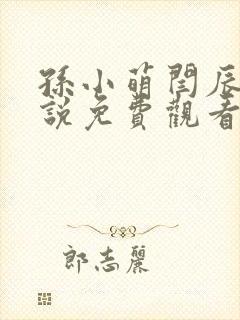 孫小萌閆辰
說免費觀看
郎志麗